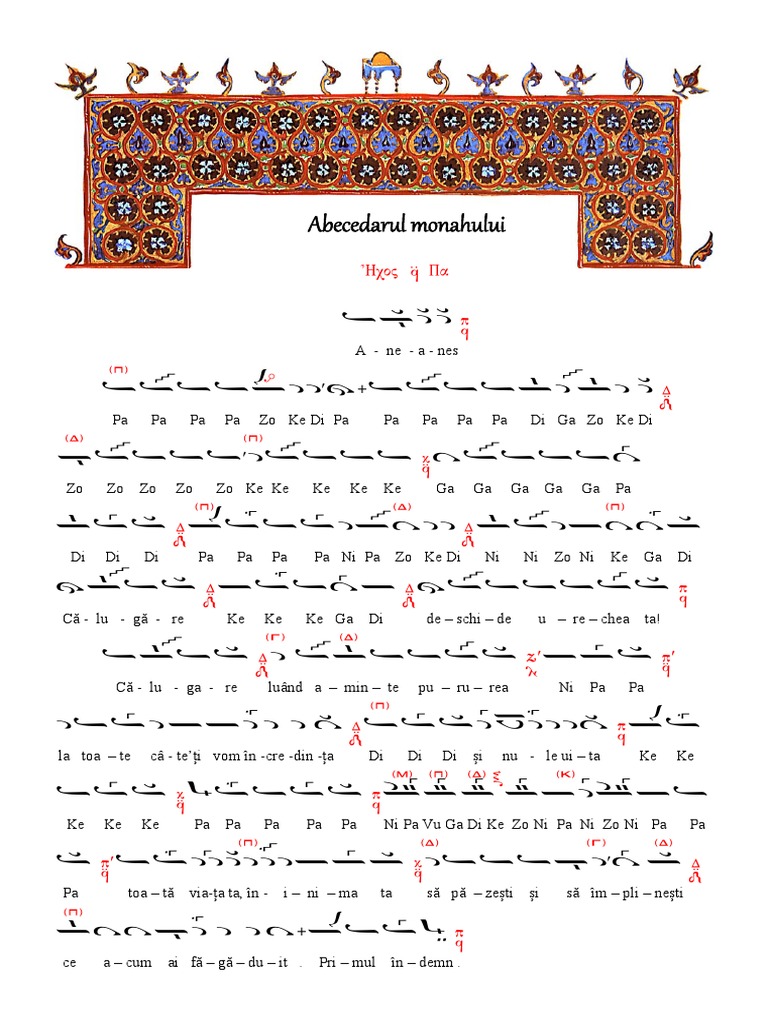 Abecedarul monahului
Ἦχος q̈ Πα
A - ne - a - nes
(Π)
Pa Pa Pa Pa Zo Ke Di Pa Pa Pa Pa Pa Di Ga Zo Ke Di
(Δ) (Π)
Zo Zo Zo Zo Zo Ke Ke Ke Ke Ke Ga Ga Ga Ga Ga Pa
(Π) (Δ) (Π)
Di Di Di Pa Pa Pa Pa Ni Pa Zo Ke Di Ni Ni Zo Ni Ke Ga Di
Că - lu - gă - re Ke Ke Ke Ga Di de – schi – de u – re – chea ta!
(Γ) (Δ)
Că - lu - ga - re luând a – min – te pu – ru – rea Ni Pa Pa
(Π)
la toa – te câ - te'ți vom în - cre - din - ța Di Di Di și nu - le ui – ta Ke Ke
(Μ) (Π) (Δ) (Κ)
Ke Ke Ke Pa Pa Pa Pa Pa Ni Pa Vu Ga Di Ke Zo Ni Pa Ni Zo Ni Pa Pa
(Π) (Δ) (Γ) (Δ)
Pa toa – tă via - ța ta, în - i – ni – ma ta să pă – zești și să îm – pli – nești
(Π)
ce a – cum ai fă – gă – du – it . Pri – mul în – demn .